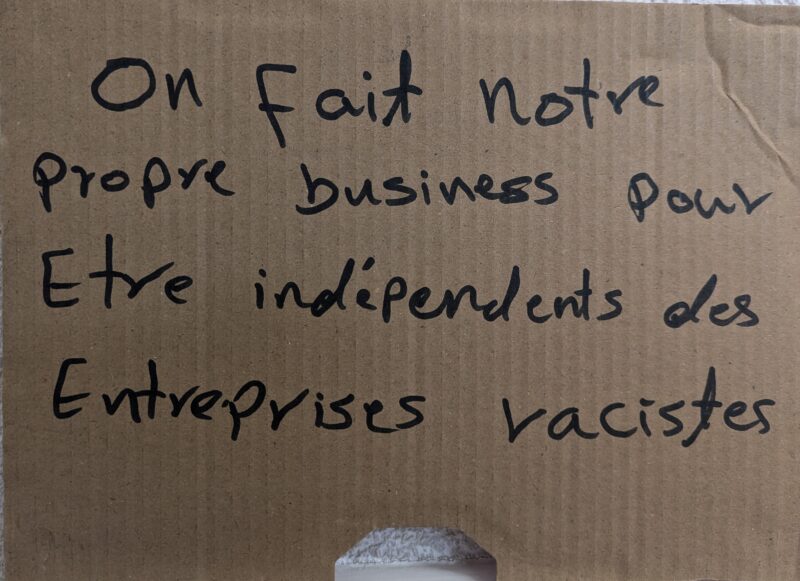 On fait notre
propre business pour
Etre indépendents des
Entreprises racistes